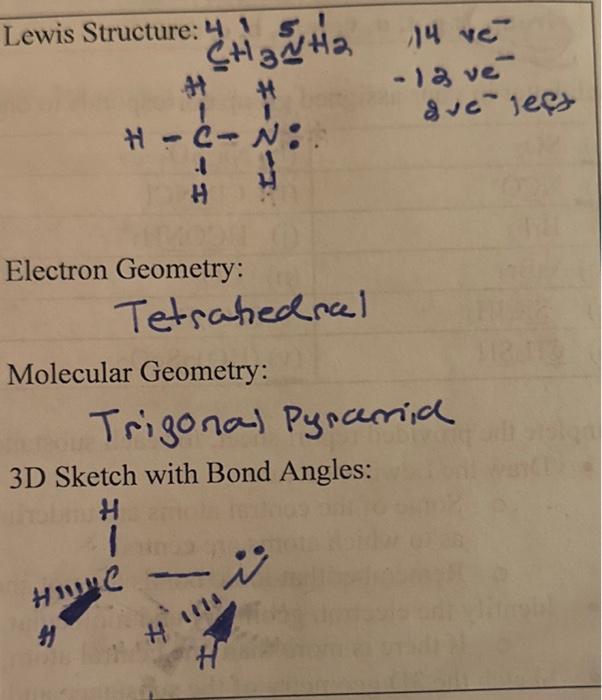 Lewis Structure: 4 1 5 1 14 ve⁻
CH3NH2
- 12 ve⁻
2 ve⁻ left
H H
H - C - N:
H H
Electron Geometry:
Tetrahedral
Molecular Geometry:
Trigonal Pyramid
3D Sketch with Bond Angles:
H
H C — N̈
H H
H